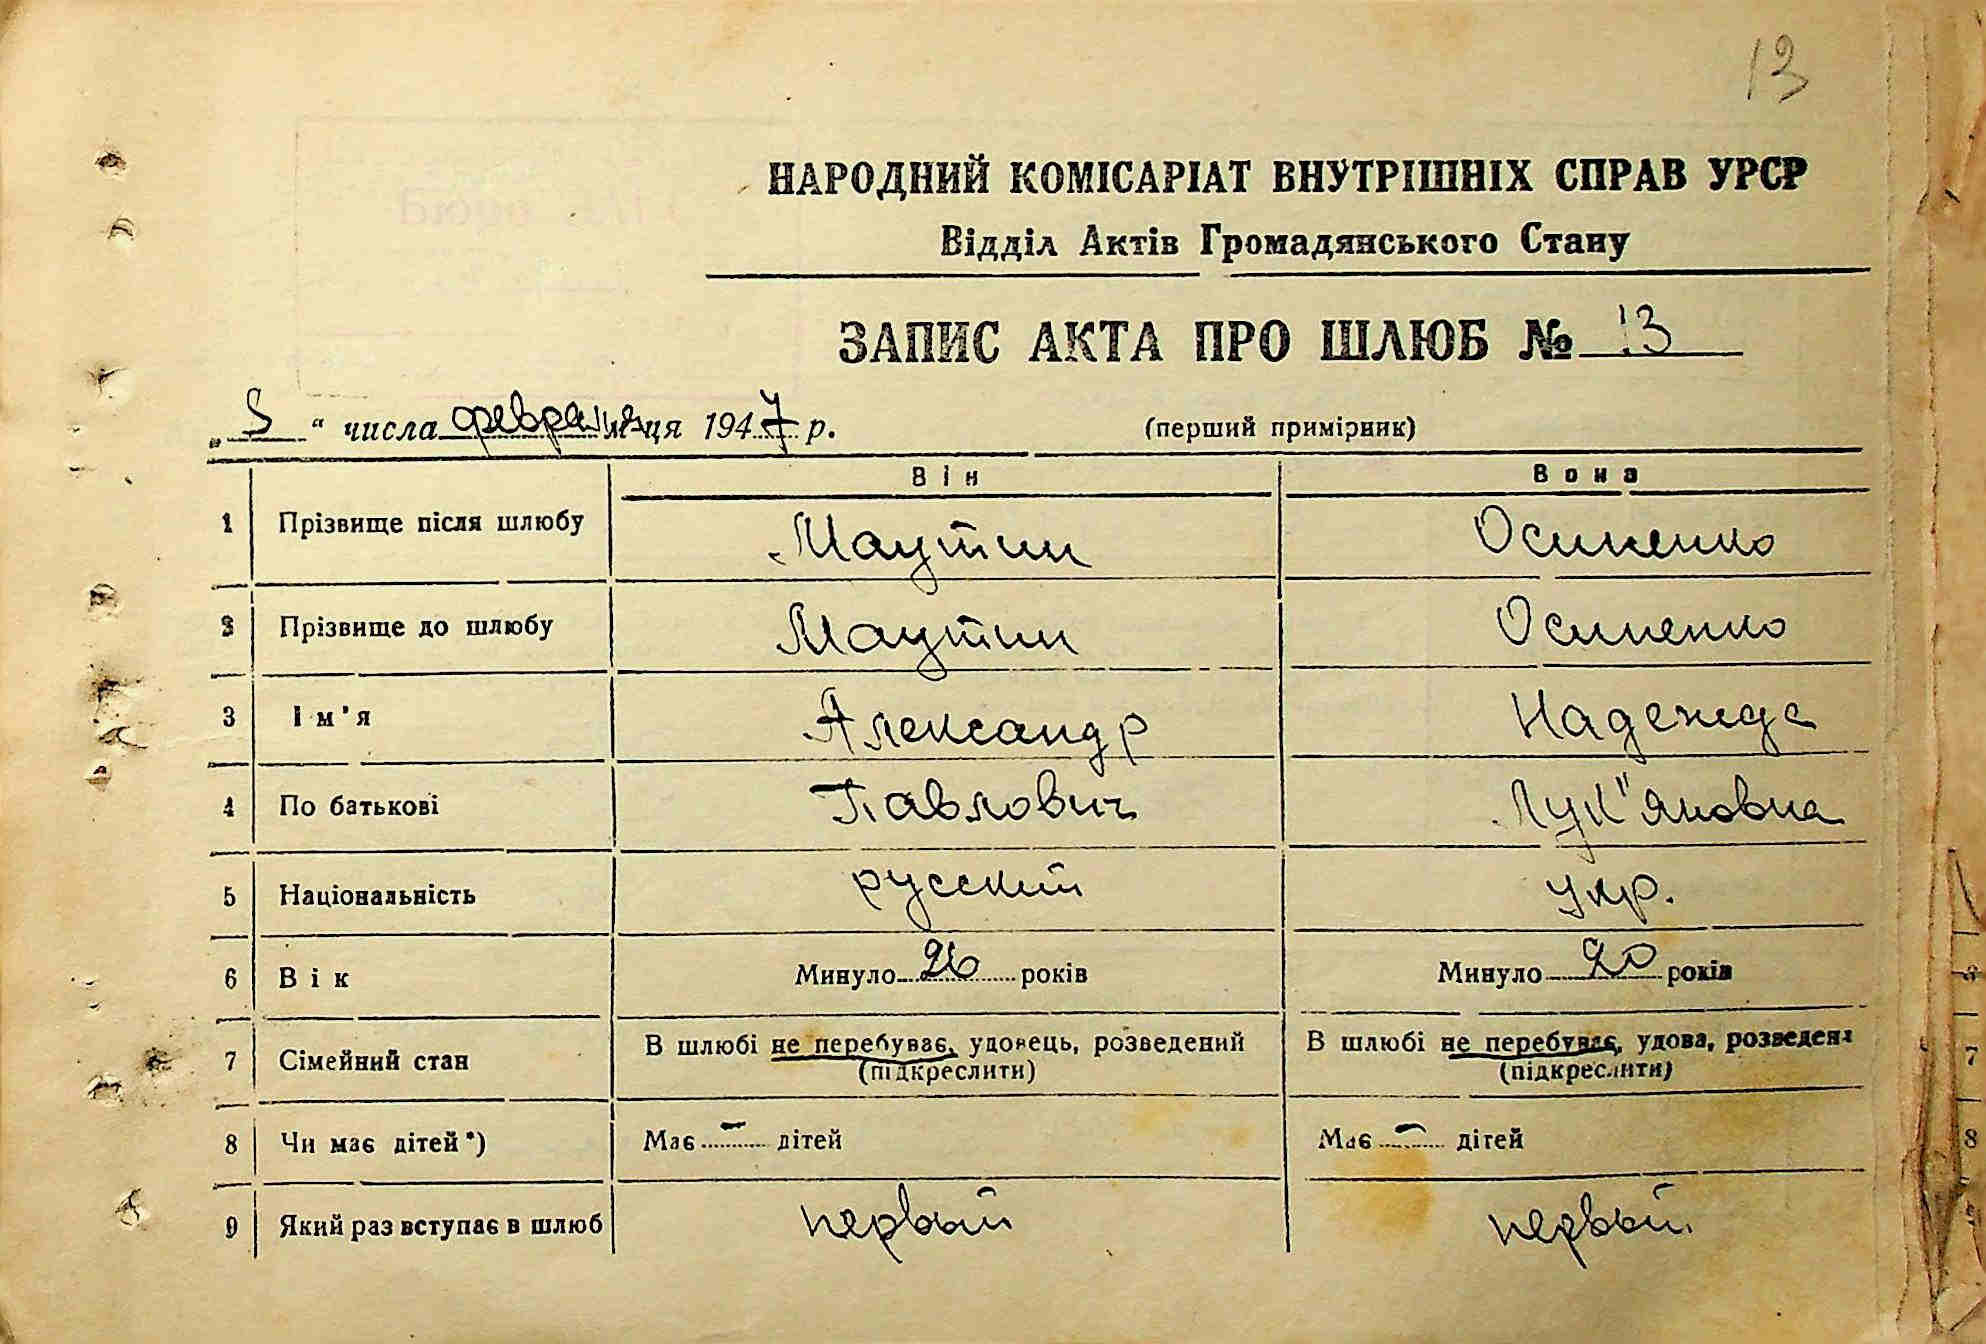 13
НАРОДНИЙ КОМІСАРІАТ ВНУТРІШНІХ СПРАВ УРСР
Відділ Актів Громадянського Стану
ЗАПИС АКТА ПРО ШЛЮБ № 13
„ 5 “ числа февраля місяця 1947 р. (перший примірник)
Він Вона
1 Прізвище після шлюбу Маутин Осипенко
2 Прізвище до шлюбу Маутин Осипенко
3 Ім'я Александр Надежда
4 По батькові Павлович Лук"яновна
5 Національність русский укр.
6 Вік Минуло 26 років Минуло 20 років
7 Сімейний стан В шлюбі не перебуває, удовець, розведений В шлюбі не перебуває, удова, розведена
(підкреслити) (підкреслити)
8 Чи має дітей*) Має – дітей Має – дітей
9 Який раз вступає в шлюб первый первый
7
8